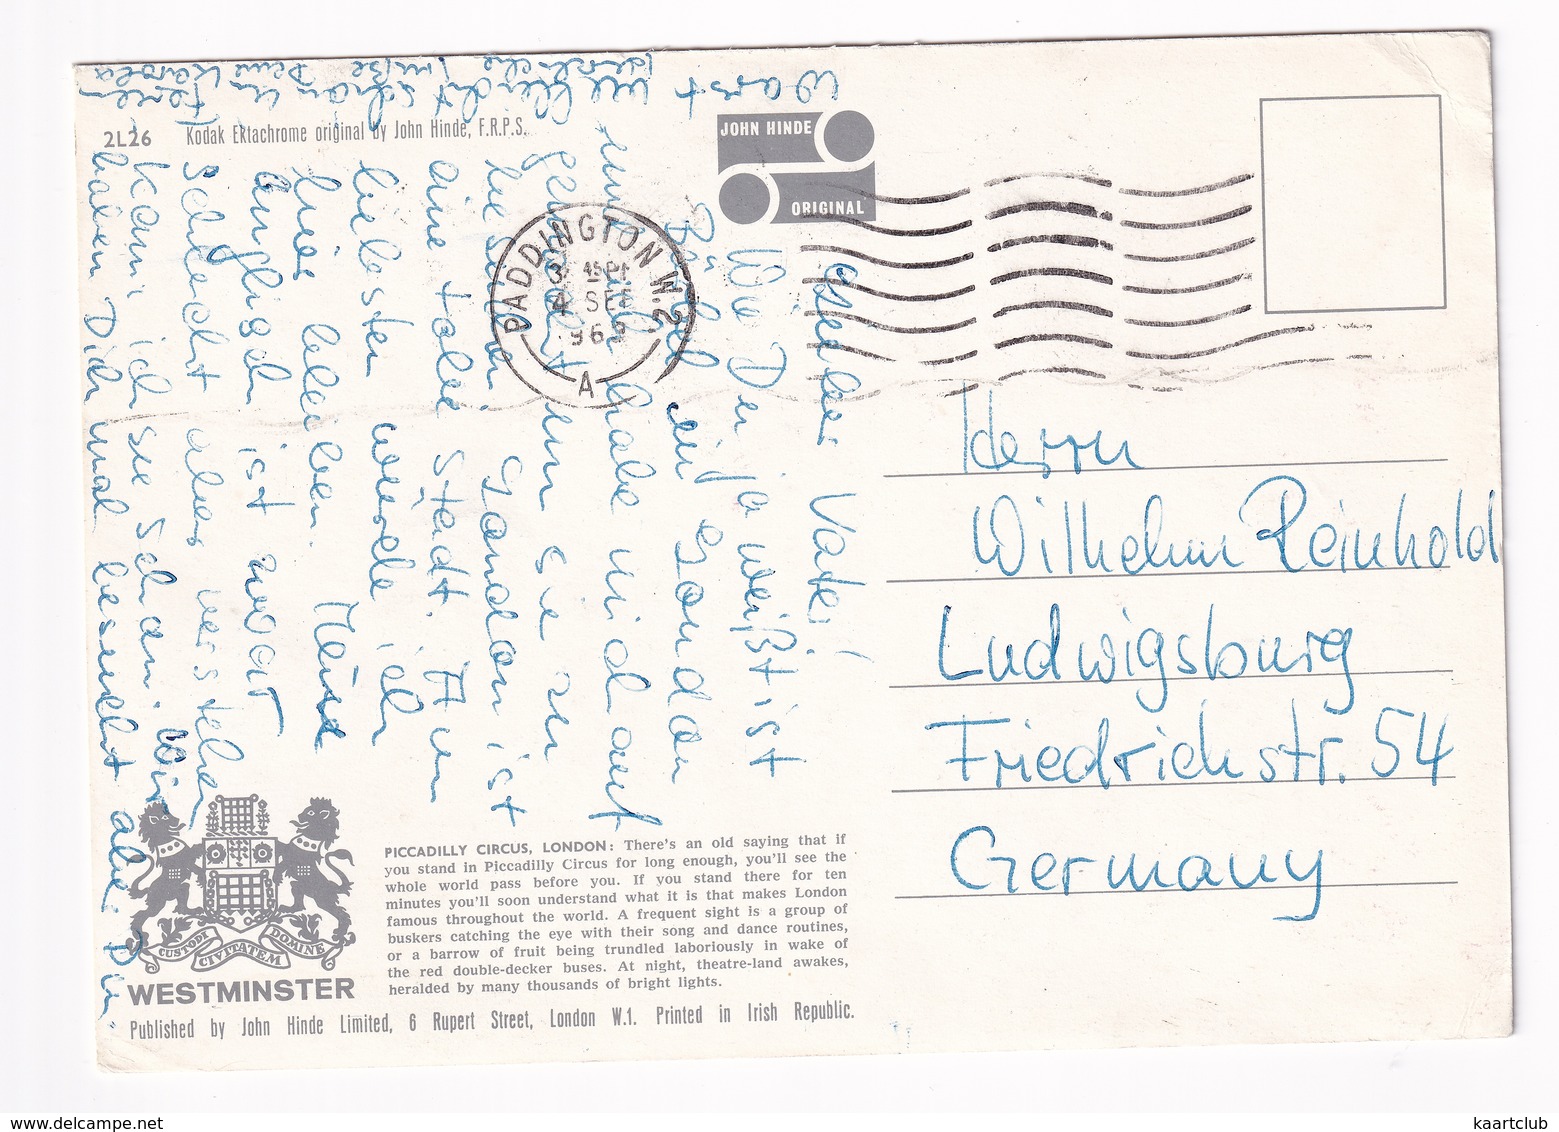 2L26 Kodak Ektachrome original by John Hinde, F.R.P.S.
JOHN HINDE
ORIGINAL
PADDINGTON W.2
4 SEP
A
Herrn
Wilhelm Reinhold
Ludwigsburg
Friedrichstr. 54
Germany
Lieber Vater!
Wie Du ja weißt ist
Bärbel in London
und ich habe mich aut
gemacht um sie zu
besuchen. London ist
eine tolle Stadt. Am
liebsten würde ich
hier bleiben. Mein
englisch ist zwar
schlecht aber verstehen
kann ich sie schon. Wir
haben Dich mal besucht aber Du
warst
herzliche Grüße
Deine
CUSTODI CIVITATEM DOMINE
WESTMINSTER
PICCADILLY CIRCUS, LONDON: There's an old saying that if
you stand in Piccadilly Circus for long enough, you'll see the
whole world pass before you. If you stand there for ten
minutes you'll soon understand what it is that makes London
famous throughout the world. A frequent sight is a group of
buskers catching the eye with their song and dance routines,
or a barrow of fruit being trundled laboriously in wake of
the red double-decker buses. At night, theatre-land awakes,
heralded by many thousands of bright lights.
Published by John Hinde Limited, 6 Rupert Street, London W.1. Printed in Irish Republic.
kaartclub